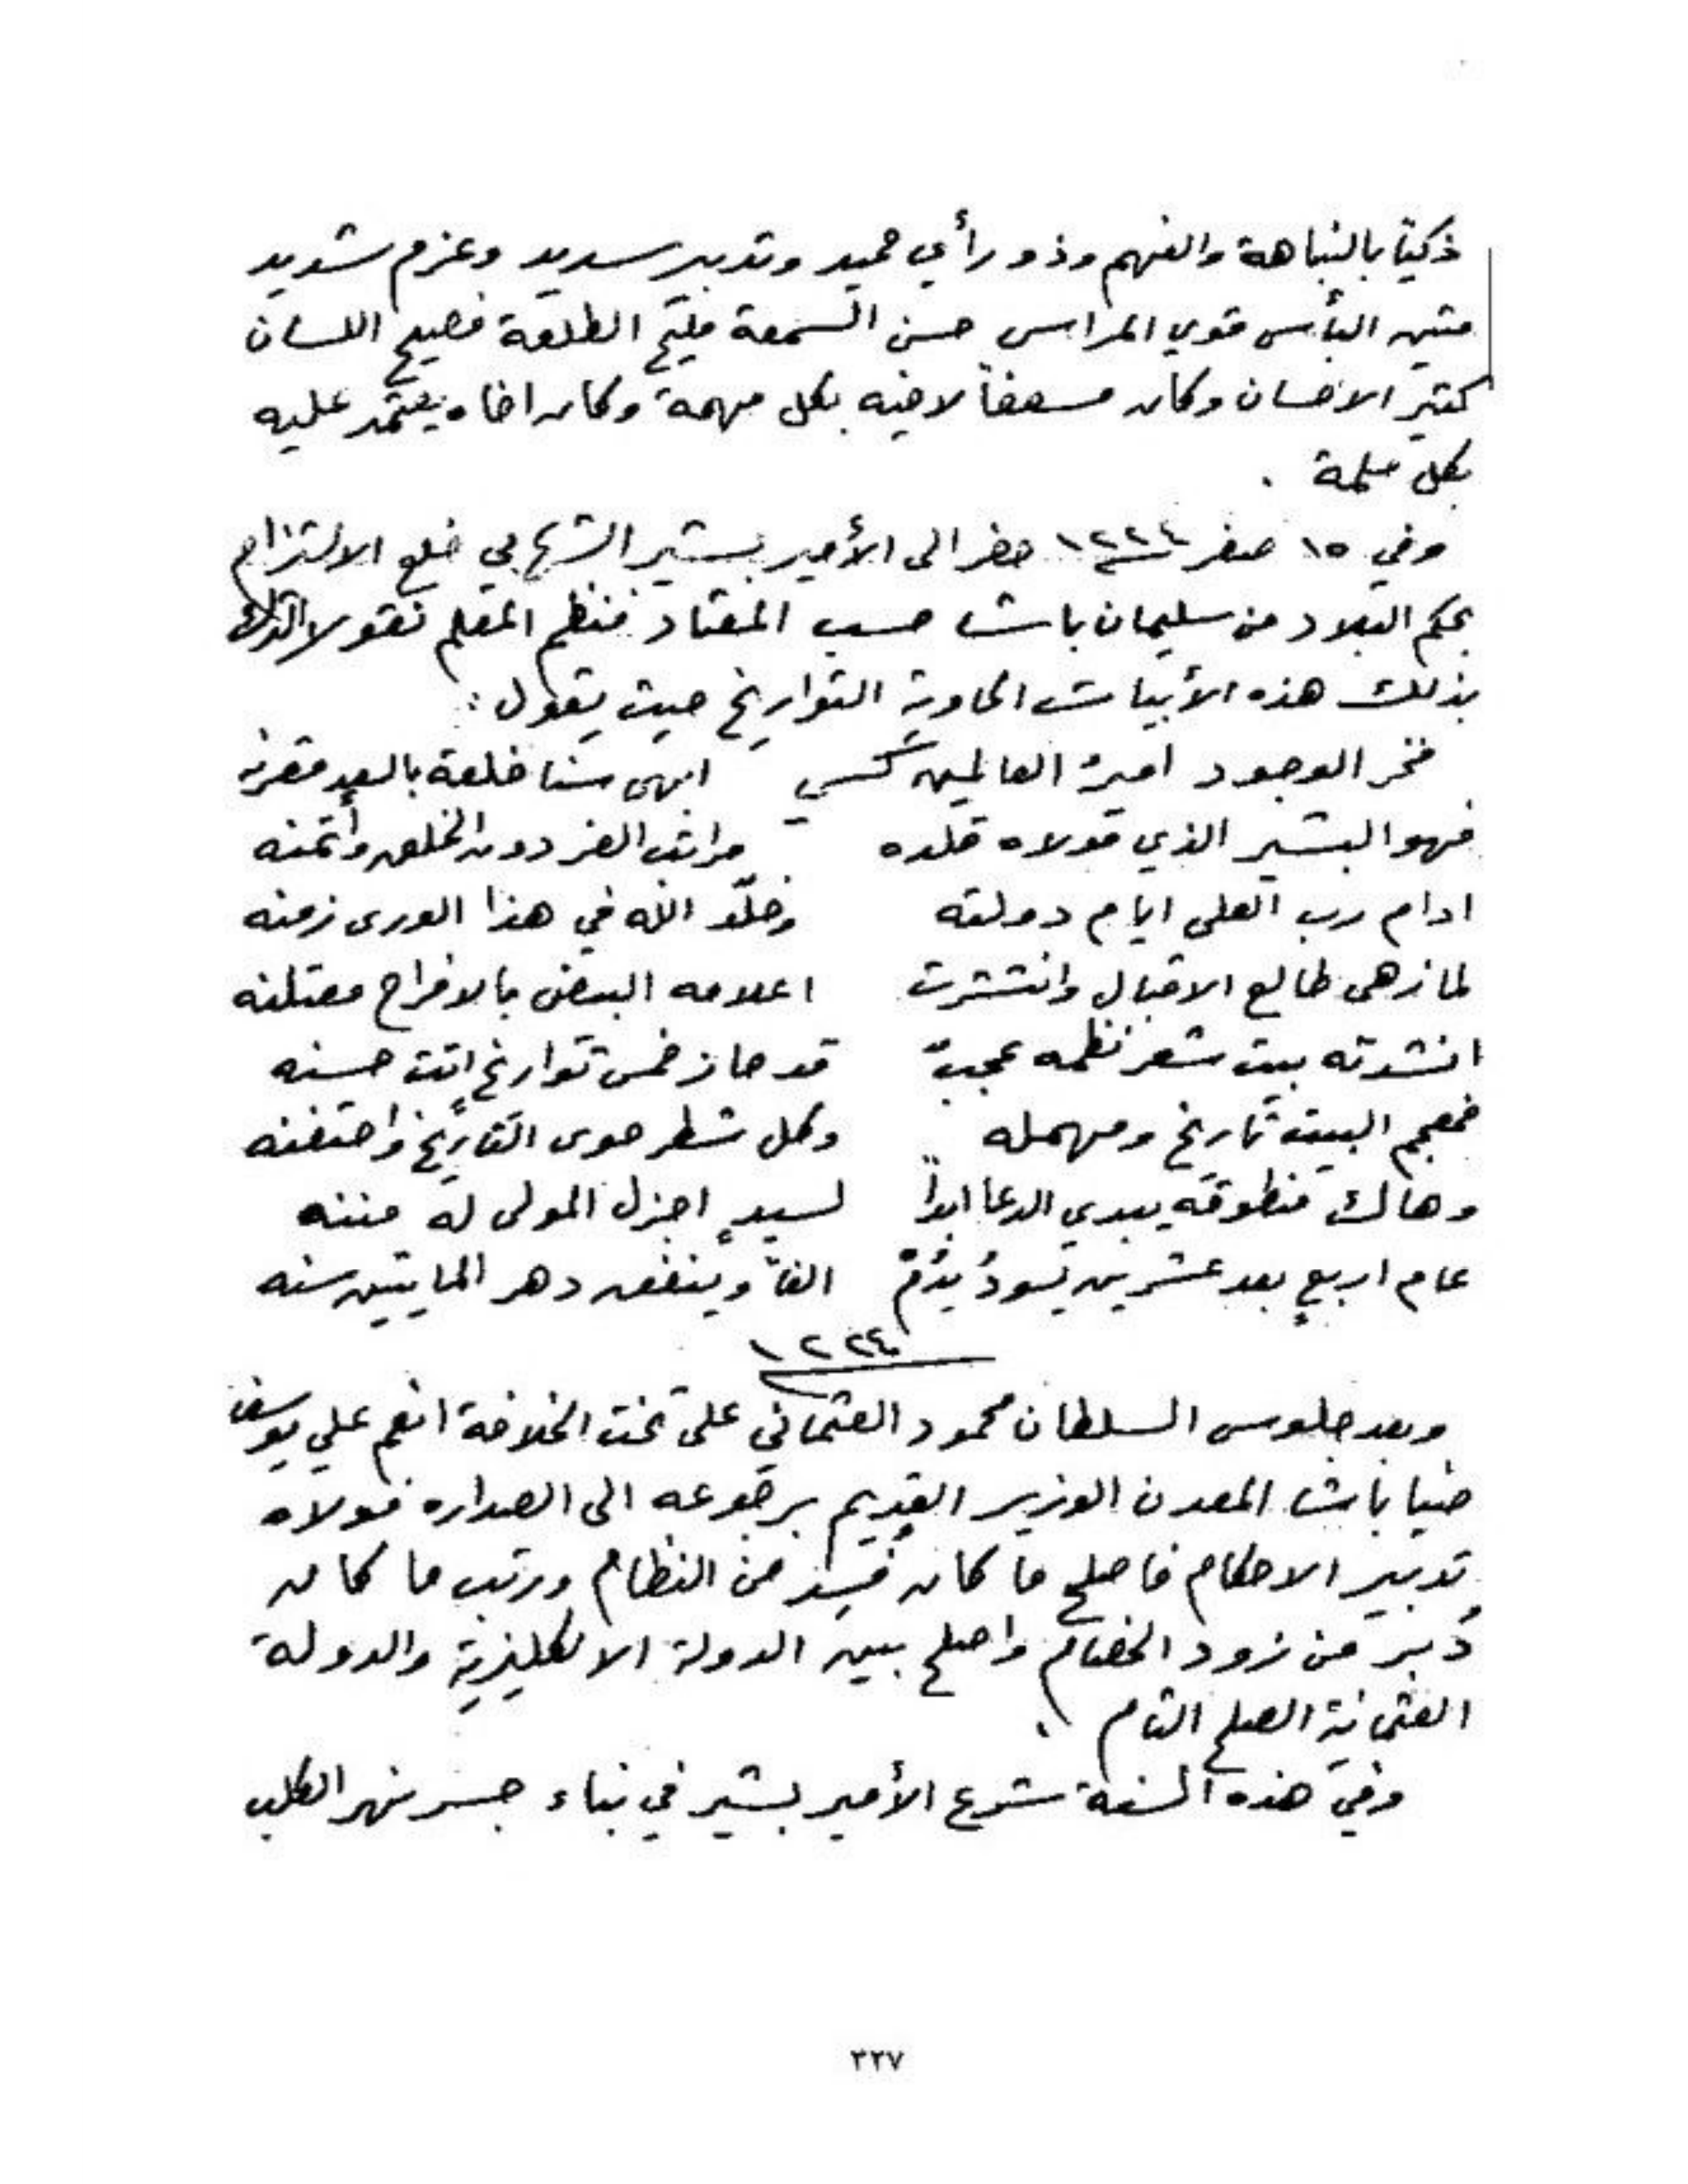 ذكيًا بالنباهة والفهم وذو رأي حميد وتدبير سديد وعزم شديد
متين البأس قوي المراس حسن السمعة مليح الطلعة فصيح اللسان
كثير الاحسان وكان مسعفاً لاخيه بكل مهمة وكان اخاه يعتمد عليه
بكل ملمة .
وفي ١٥ صفر سنة ١٢٢٤ حضر الى الأمير بشير الشهابي خلع الالتزام
بحكم البلاد من سليمان باشا حسب المعتاد فنظم المعلم نقولا الترك
بذلك هذه الأبيات الحاوية التواريخ حيث يقول :
فخر الوجود اميرُ العالمين كُسي ابهى سنا خلعة بالعيد مقترنه
فهو البشير الذي مولاه قلده مراتب العز دون الخلق وأتمنه
ادام رب العلى ايام دولته وخلّد الله في هذا الورى زمنه
لما زهى طالع الاقبال وانتشرت اعلامه البيض بالافراح معتلنه
انشدته بيت شعر نظمه عجبٌ قد حاز خمس تواريخٍ اتت حسنه
فمعجم البيت تاريخ ومهمله وكل شطر حوى التاريخ واحتضنه
وهاك منطوقه يبدي الدعا ابداً لسيدٍ اجزل المولى له مننه
عام اربعٍ بعد عشرين يسودُ يدُمْ الفاً وينفق دهر المايتين سنه
سنة ١٢٢٤
وبعد جلوس السلطان محمود العثماني على تخت الخلافة انعم علي يوسف
ضيا باشا المعدن الوزير القديم برجوعه الى الصداره فولاه
تدبير الاحكام فاصلح ما كان فُسِدَ من النظام ورتب ما كان
دُبر من زود الخصام واصلح بين الدولة الانكليزية والدولة
العثمانية الصلح التام .
وفي هذه السنة شرع الأمير بشير في بناء جسر نهر الكلب
٣٣٧